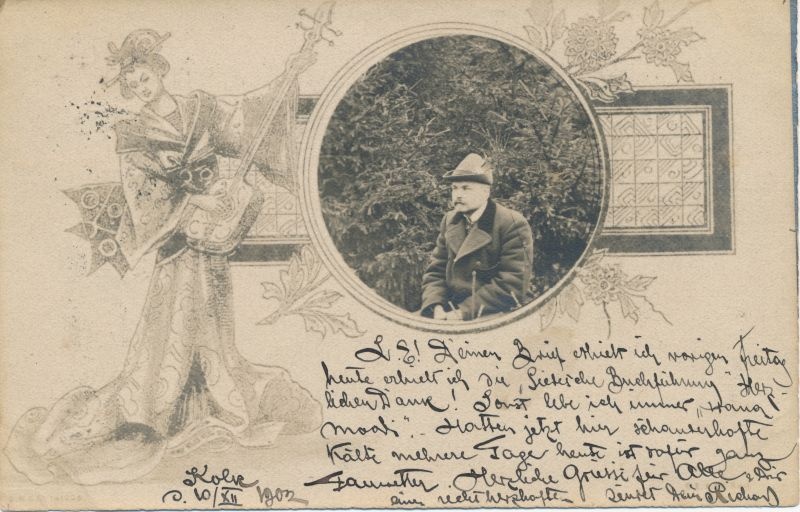 L. E! Deinen Brief erhielt ich vorigen Freitag
heute erhielt ich die Buchführung" Herz-
lichen Dank! Sonst lebe ich immer
Hatten jetzt hier schauderhafte
Kälte mehrere Tage heute ist dafür ganz
Herzliche Grüsse für Alle, Dir
einen recht herzhaften sendet Dein Richard
d. 10/XII 1902